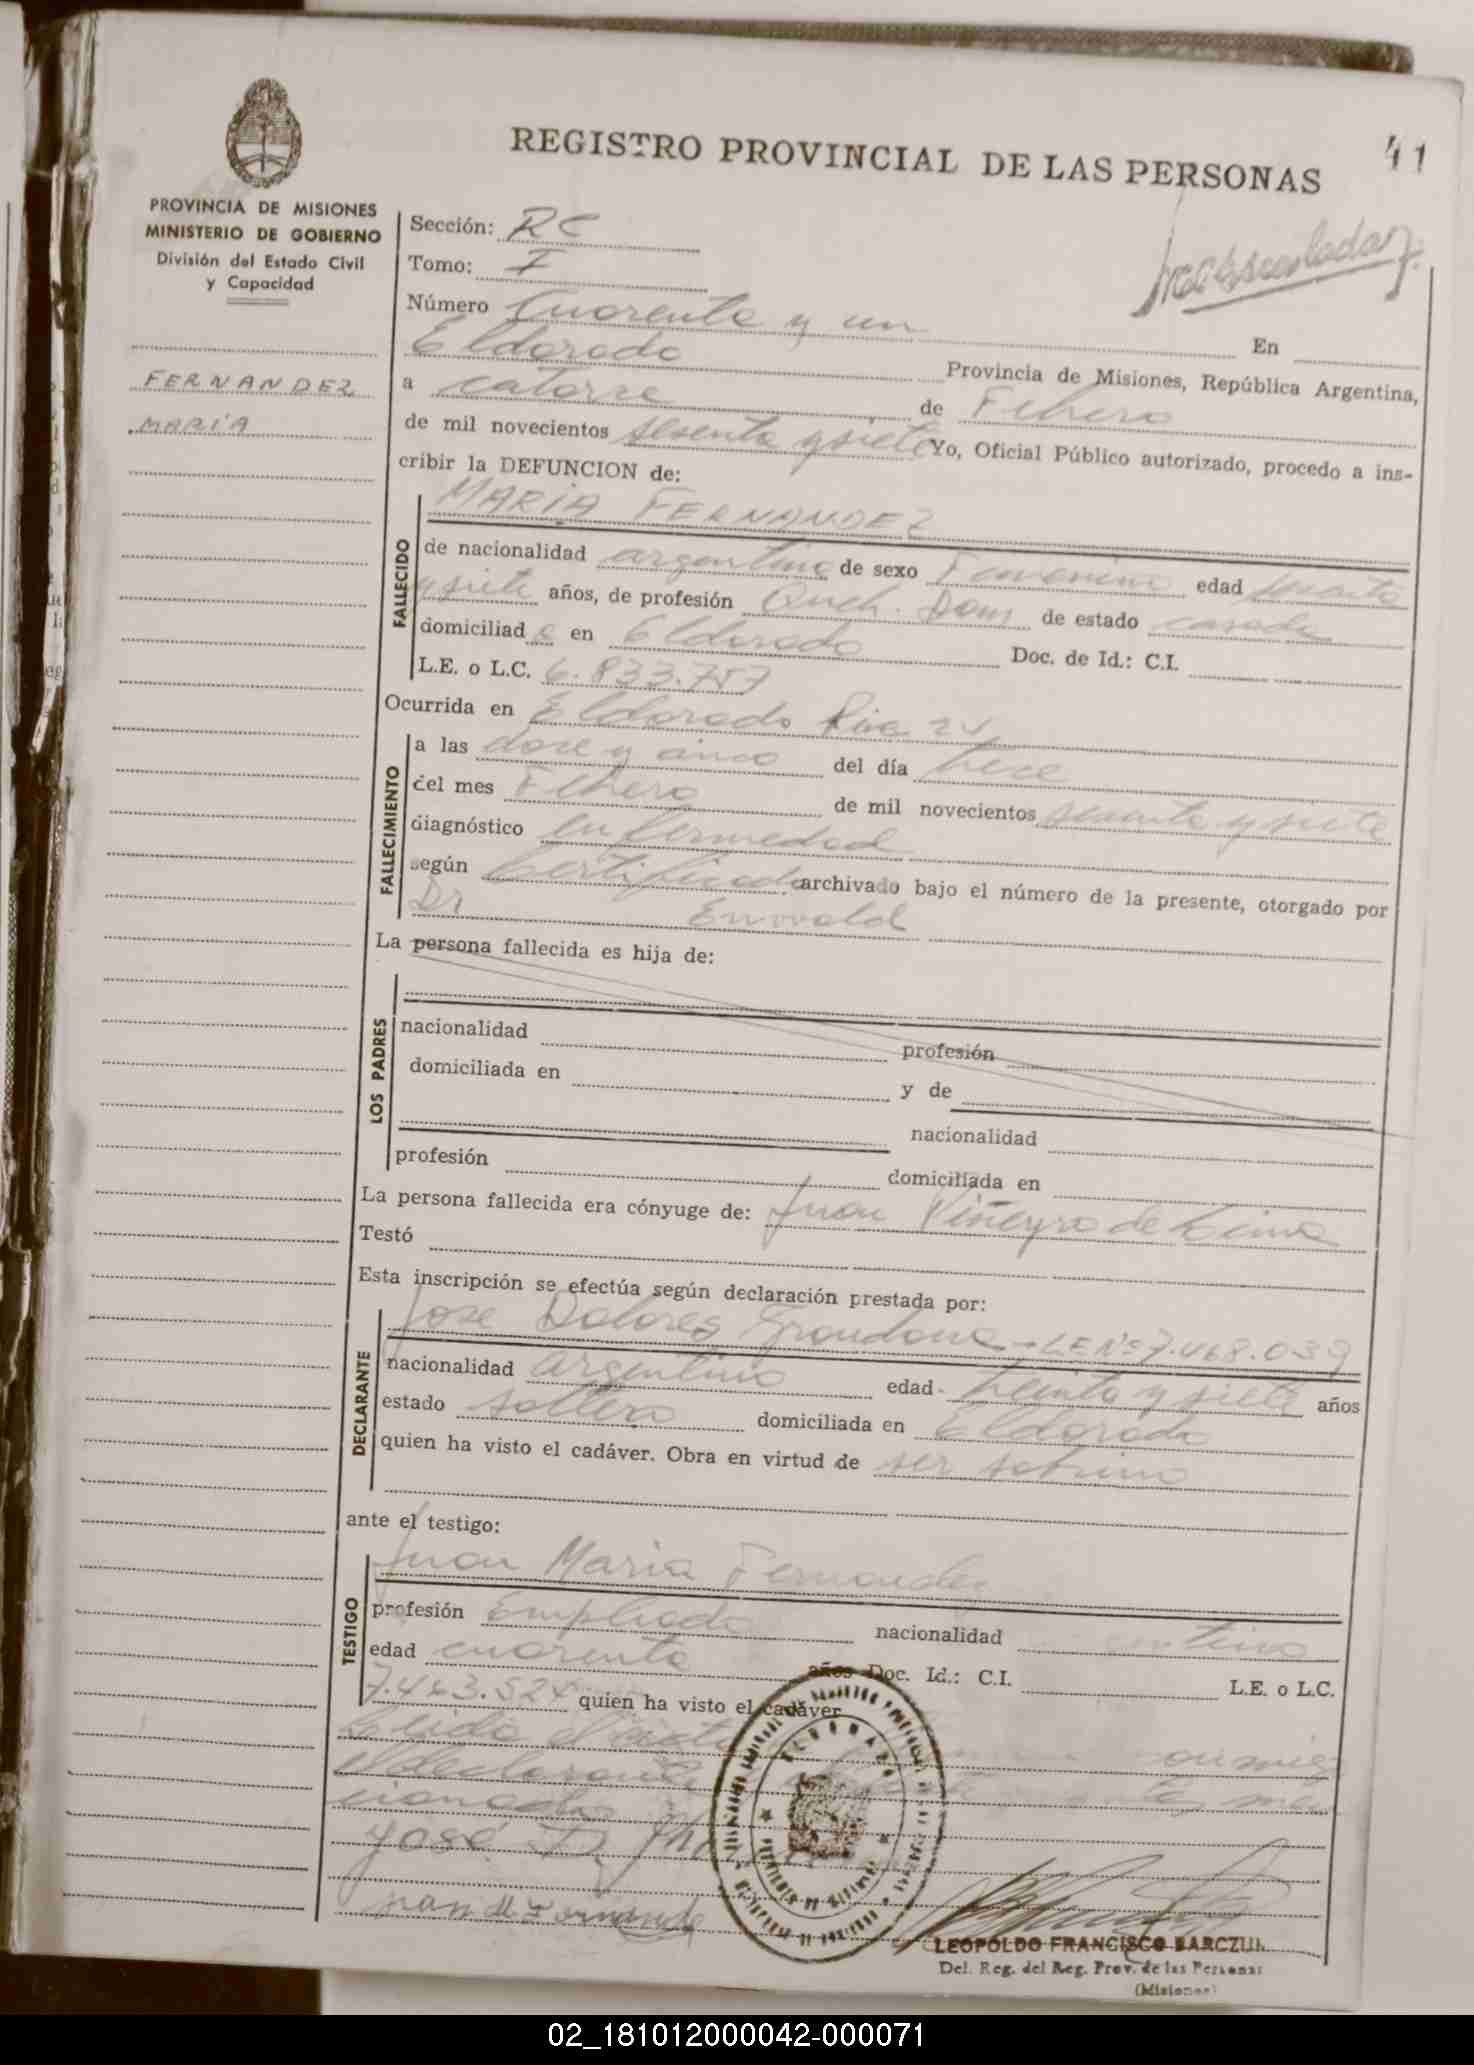 REGISTRO PROVINCIAL DE LAS PERSONAS
41
PROVINCIA DE MISIONES
MINISTERIO DE GOBIERNO
División del Estado Civil
y Capacidad
FERNANDEZ
MARÍA
Sección: RC
Tomo: I
Número Cuarenta y un En
Eldorado Provincia de Misiones, República Argentina,
a catorce de Febrero
de mil novecientos sesenta y siete Yo, Oficial Público autorizado, procedo a ins-
cribir la DEFUNCION de:
MARIA FERNANDEZ
FALLECIDO
de nacionalidad argentina de sexo Femenino edad sesenta
y siete años, de profesión Queh. Dom de estado casada
domiciliada en Eldorado Doc. de Id.: C.I.
L.E. o L.C. 6.833.757
Ocurrida en Eldorado
FALLECIMIENTO
a las doce y cinco del día trece
del mes Febrero de mil novecientos sesenta y siete
diagnóstico enfermedad
según Certificado archivado bajo el número de la presente, otorgado por
Dr
La persona fallecida es hija de:
LOS PADRES
nacionalidad profesión
domiciliada en y de
nacionalidad
profesión domiciliada en
La persona fallecida era cónyuge de: Juan Viñeyra de Lima
Testó
Esta inscripción se efectúa según declaración prestada por:
Jose Dolores Grondona - LE Nº 7.468.039
DECLARANTE
nacionalidad argentino edad treinta y siete años
estado soltero domiciliada en Eldorado
quien ha visto el cadáver. Obra en virtud de ser sobrino
ante el testigo:
Juan Maria Fernandez
TESTIGO
profesión Empleado nacionalidad
edad cuarenta años Doc. Id.: C.I. L.E. o L.C.
7.463.524 quien ha visto el cadáver
Leido el acta
el declarante
cionado
José D.
Juan M Fernandez
LEOPOLDO FRANCISCO BARCZUK
Del. Reg. del Reg. Prov. de las Personas
(Misiones)
02_181012000042-000071